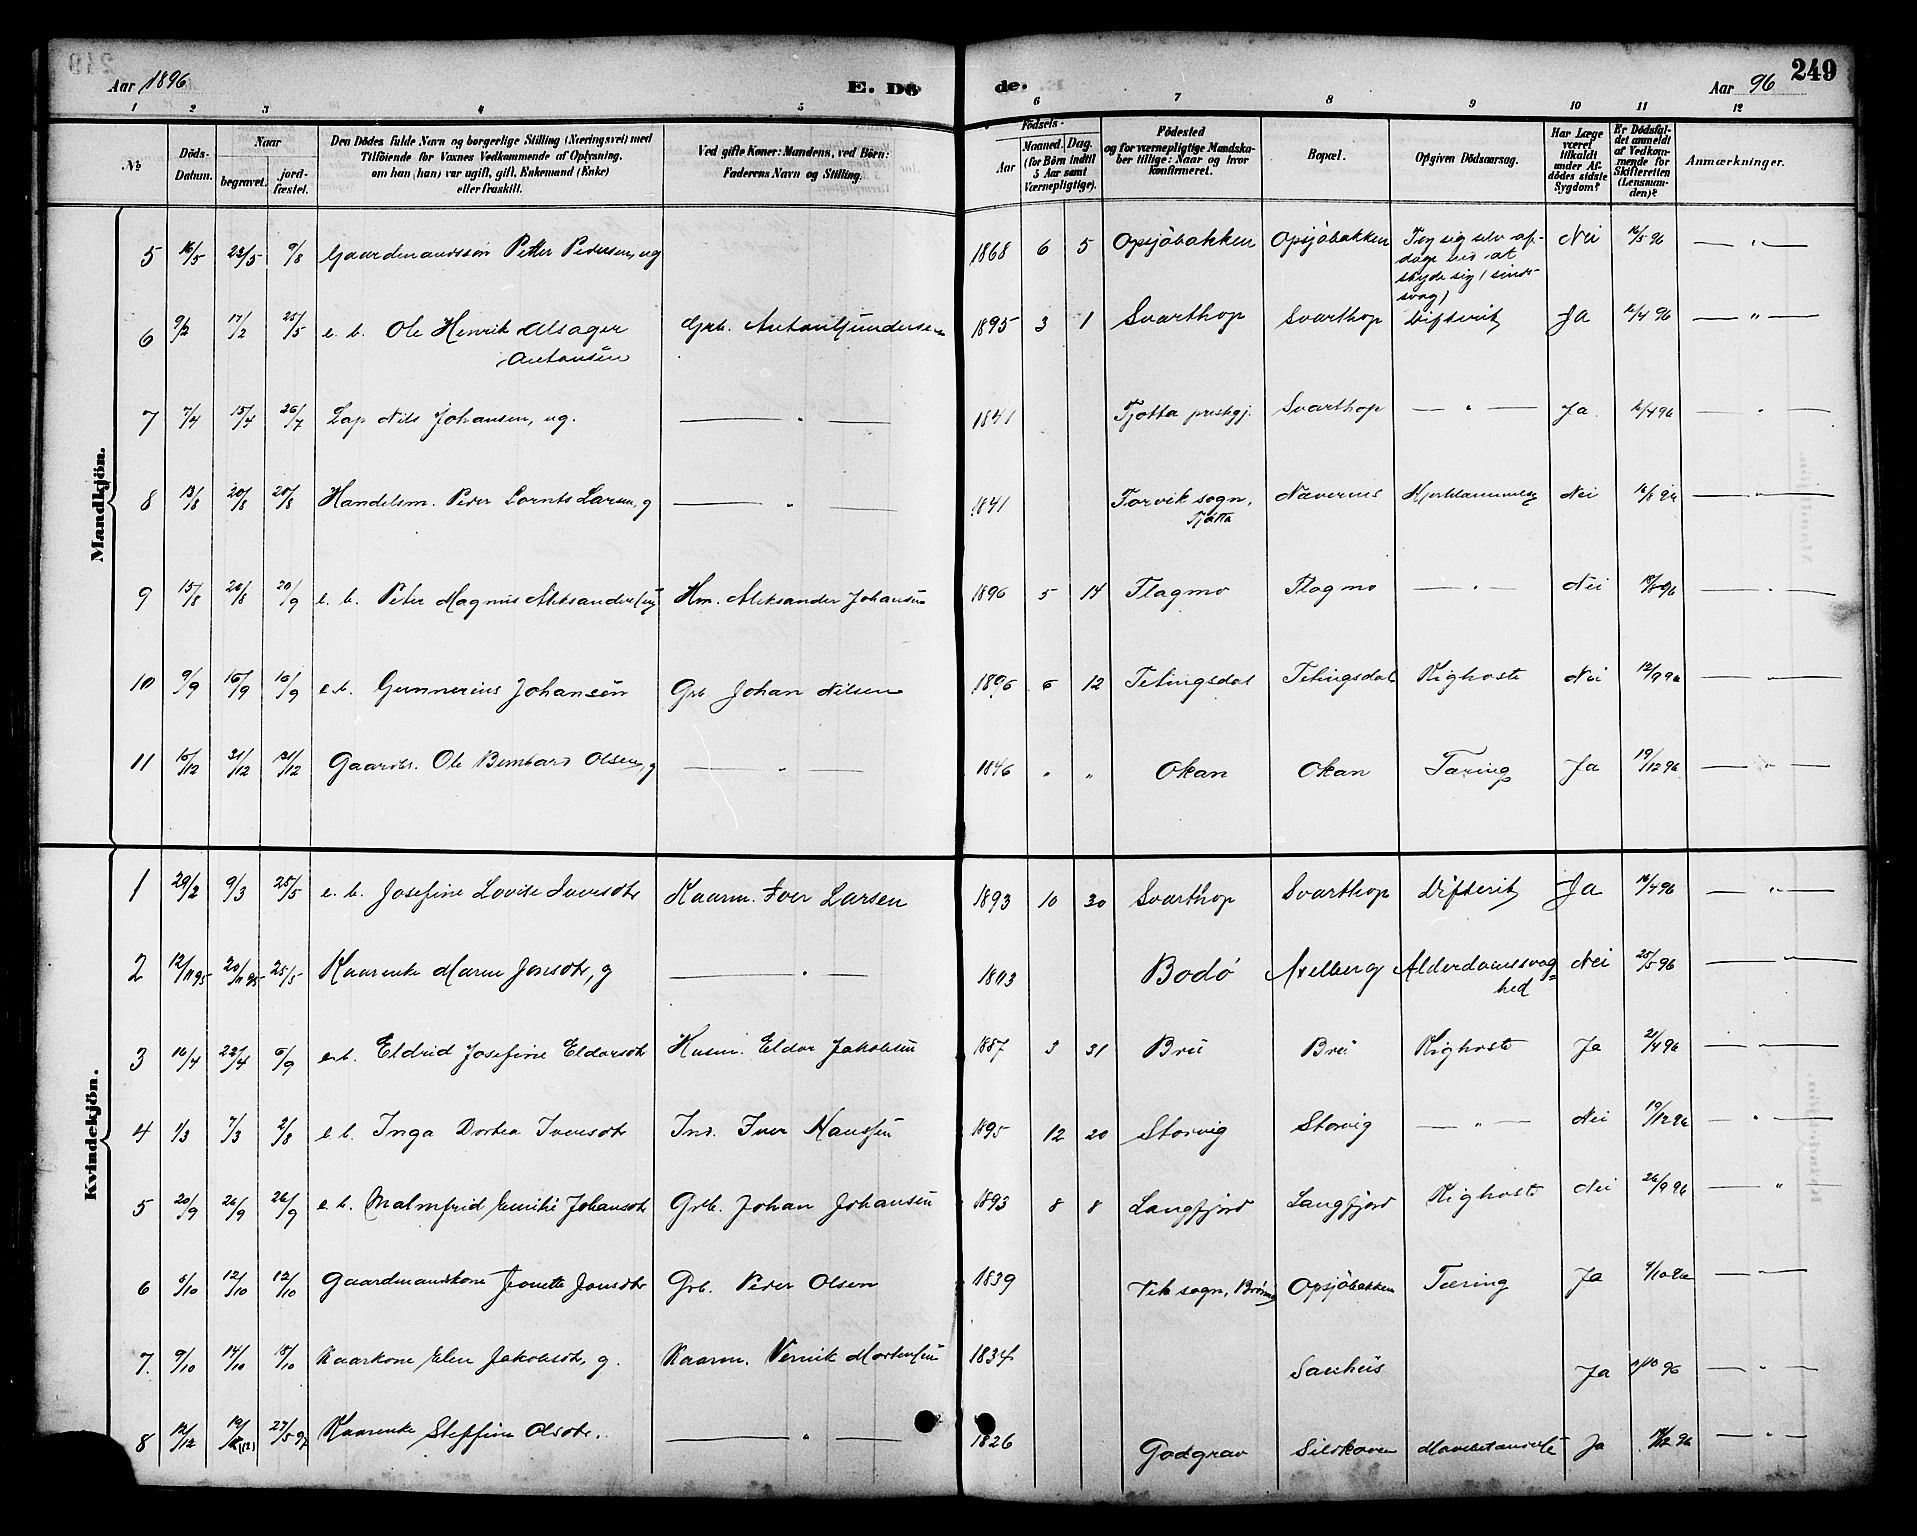 Aar 1896
E. Dö
de.
Aar 96
249
1 2 3 4 5 6 7 8 9 10 11 12
No
Döds-Datum.
Naar
begravet.
jord-fæstet.
Den Dödes fulde Navn og borgerlige Stilling (Næringsvei) med
Tilföiende for Voxnes Vedkommende af Oplysning,
om han (hun) var ugift, gift, Enkemand (Enke)
eller fraskilt.
Ved gifte Koner: Mandens, ved Börn:
Faderens Navn og Stilling.
Födsels-
Aar
Maaned. Dag.
(for Börn indtil
5 Aar samt
Værnepligtige).
Födested
og for værnepligtige Mandska-
ber tillige: Naar og hvor
konfirmeret.
Bopæl.
Opgiven Dödsaarsag.
Har Læge
været
tilkaldt
under Af-
dödes sidste
Sygdom?
Er Dödsfal-
det anmeldt
af Vedkom-
mende for
Skifteretten
(Lensman-
den)?
Anmærkninger.
Mandkjön.
5 16/5 23/5 9/8 Gaardmandssön Petter Pedersen, ug 1868 6 5 Opsjöbakken Opsjöbakken Tog sig selv af-
dage ved at
skyde sig (sinds-
svag) Nei 16/5 96 — " —
6 9/2 17/2 25/5 e. b. Ole Henrik Alsager
Antonsen Grb. Anton Gundersen 1895 3 1 Svarthop Svarthop Difterit Ja 16/4 96 — " —
7 7/4 15/4 26/7 Lap Nils Johansen, ug. — " — 1841 Tjötta prestgj. Svarthop — " — Ja 16/4 96 — " —
8 13/8 20/8 20/8 Handelsm. Peder Lornts Larsen, g — " — 1841 Forvik sogn,
Tjøtta Nævernes Nei — " —
9 15/8 20/8 20/9 e. b. Peter Magnus Aleksandersen Hm. Aleksander Johansen 1896 5 14 Flagmo Flagmo — " — Nei — " —
10 9/9 16/9 16/9 e.b. Gunnerius Johansen Grb Johan Nilsen 1896 6 12 Tetingsdal Tetingsdal Kighoste Nei 12/9 96 — " —
11 15/12 31/12 31/12 Gaardbr. Ole Bernhard Olsen, g — " — 1846 " " Okan Okan Tæring Ja 19/12 96 — " —
Kvindekjön.
1 29/2 9/3 25/5 e. b. Josefine Lovise Iversdtr Kaarm. Iver Larsen 1893 10 30 Svarthop Svarthop Difterit Ja 16/4 96 — " —
2 12/11 95 20/11 95 25/5 Kaarenke Maren Jonsdtr, g — " — 1813 Bodö Alderdomssvag=
hed Nei 25/5 96 — " —
3 16/4 22/4 6/9 e.b. Eldrid Josefine Eldorsdtr Husm. Eldor Jakobsen 1887 3 31 Kighoste Ja 21/4 96 — " —
4 1/3 7/3 2/8 e. b. Inga Dortea Iversdtr Ind. Iver Hanssen 1895 12 20 Storvig Storvig — " — Nei 19/12 96 — " —
5 20/9 26/9 26/9 e. b. Malmfrid Emilie Johansdtr Grb. Johan Johansen 1893 8 8 Langfjord Langfjord Kighoste Nei 26/9 96 — " —
6 5/10 12/10 12/10 Gaardmandskone Jonette Jonsdtr Grb. Peder Olsen 1839 Vik sogn, Opsjöbakken Tæring Ja 9/10 96 — " —
7. 9/10 14/10 18/10 Kaarkone Elen Jakobsdtr, g. Kaarm. Mortensen 1834 Sanhus Ja — " —
8 12/12 19/12 (12) 27/5 97 Kaarenke Steffine Olsdtr. — " — 1826 Godgrav Ja — " —